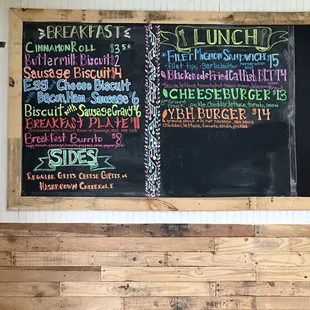 BREAKFAST
CINNAMON ROLL $3.50
Buttermilk Biscuit 2
Sausage Biscuit $4
Egg & Cheese Biscuit
Bacon, Ham, Sausage $6
Biscuit with Sausage Gravy $6
BREAKFAST PLATE $11
Breakfast Burrito $8
SIDES
REGULAR GRITS CHEESE GRITS OR
HASHBROWN CASSEROLE
LUNCH
FILET MIGNON SANDWICH $15
filet tips, garlic butter
Blackened or Fried Catfish BLT $14
CHEESEBURGER $13
pickle, cheddar, lettuce, tomato, onion
YBH BURGER $14
cheddar, lettuce, tomato, onion, pickle